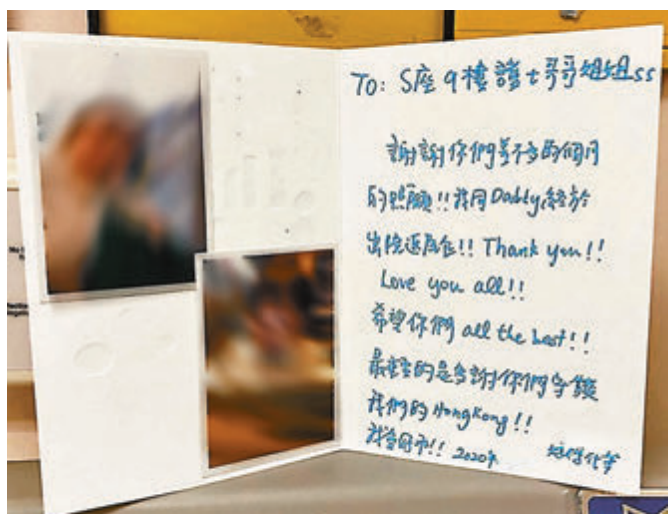 To: S座9樓護士哥哥姐姐ss
謝謝你們差不多的個月
的照顧!!我同Daddy終於
出院返屋企!! Thank you!!
Love you all!!
希望你們 all the best!!
最重要的是多謝你們守護
我們的HongKong!!
2020年